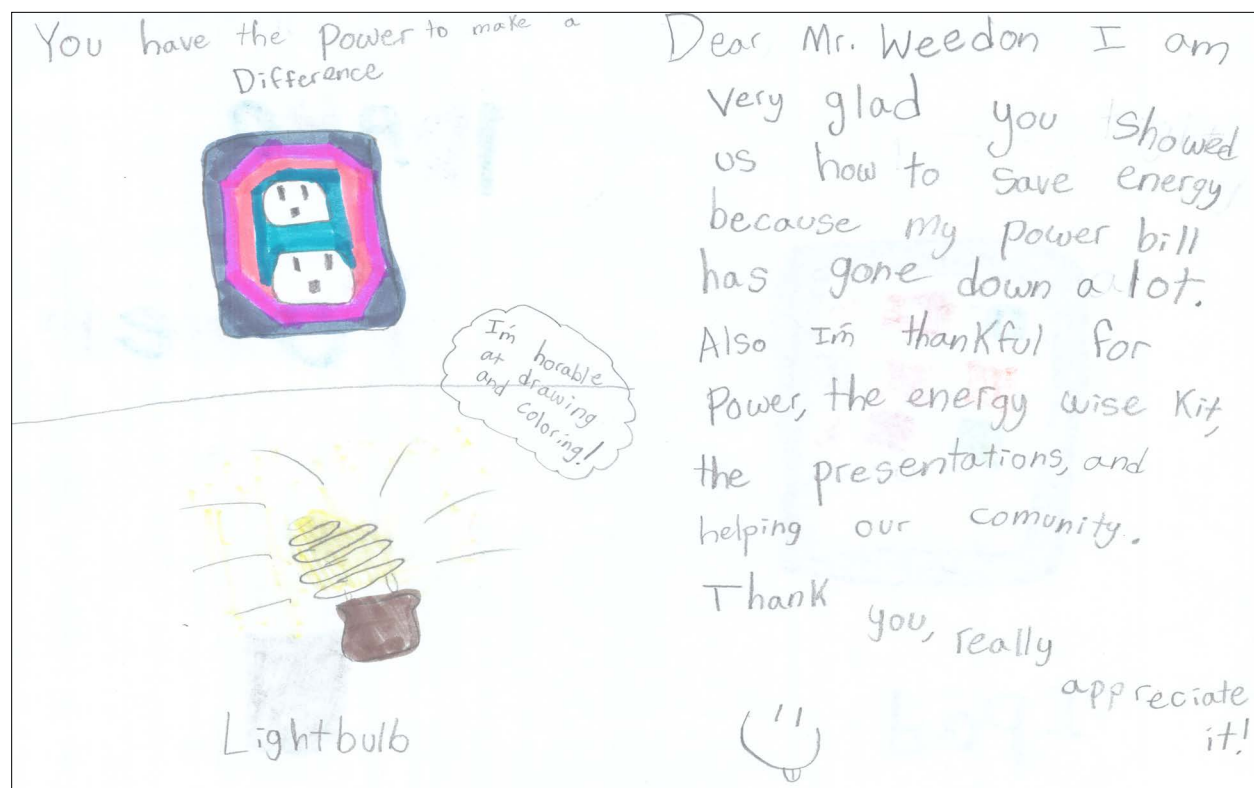 You have the power to make a
Difference
I'm horable
at drawing
and coloring!
Lightbulb
Dear Mr. Weedon I am
very glad you showed
us how to save energy
because my power bill
has gone down a lot.
Also I'm thankful for
Power, the energy wise Kit,
the presentations, and
helping our comunity.
Thank you, really
appreciate
it!